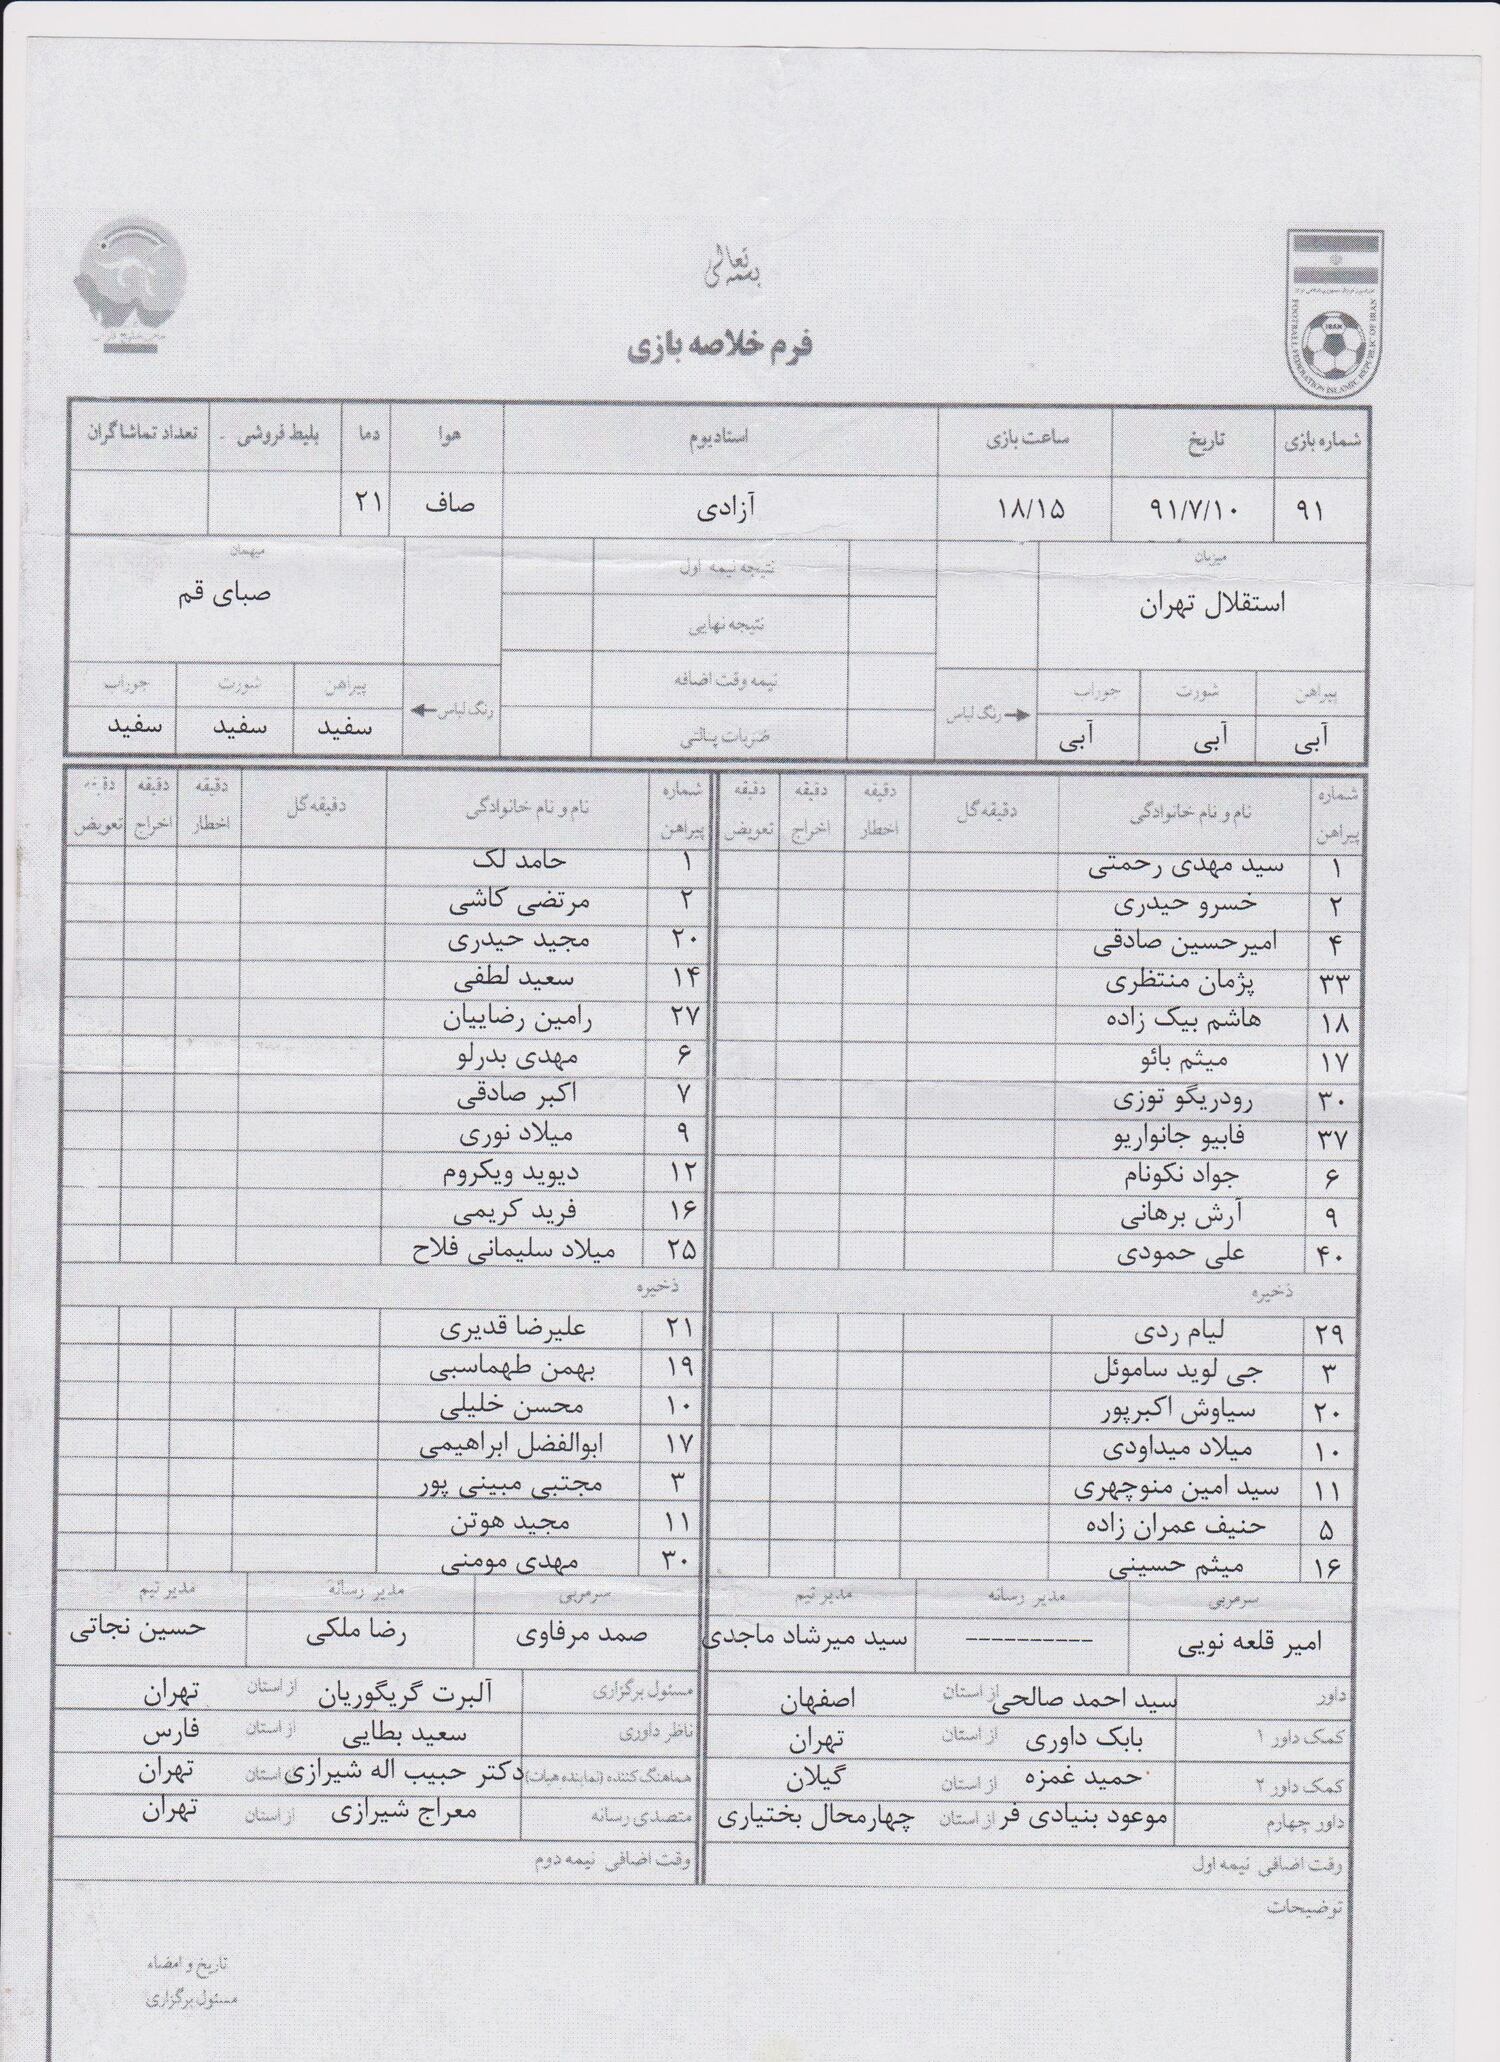 بسمه تعالی
فرم خلاصه بازی
FOOTBALL FEDERATION ISLAMIC REPUBLIC OF IRAN
IRAN
شماره بازی تاریخ ساعت بازی استادیوم هوا دما بلیط فروشی تعداد تماشاگران
۹۱ ۹۱/۷/۱۰ ۱۸/۱۵ آزادی صاف ۲۱
میزبان میهمان
استقلال تهران صبای قم
نتیجه نیمه اول
نتیجه نهایی
نیمه وقت اضافه
ضربات پنالتی
پیراهن شورت جوراب رنگ لباس
آبی آبی آبی
پیراهن شورت جوراب رنگ لباس
سفید سفید سفید
شماره پیراهن نام و نام خانوادگی دقیقه گل دقیقه اخطار دقیقه اخراج دقیقه تعویض
۱ سید مهدی رحمتی
۲ خسرو حیدری
۴ امیرحسین صادقی
۳۳ پژمان منتظری
۱۸ هاشم بیک زاده
۱۷ میثم بائو
۳۰ رودریگو توزی
۳۷ فابیو جانواریو
۶ جواد نکونام
۹ آرش برهانی
۴۰ علی حمودی
ذخیره
۲۹ لیام ردی
۳ جی لوید ساموئل
۲۰ سیاوش اکبرپور
۱۰ میلاد میداودی
۱۱ سید امین منوچهری
۵ حنیف عمران زاده
۱۶ میثم حسینی
سرمربی مدیر رسانه مدیر تیم
امیر قلعه نویی ---------- سید میرشاد ماجدی
شماره پیراهن نام و نام خانوادگی دقیقه گل دقیقه اخطار دقیقه اخراج دقیقه تعویض
۱ حامد لک
۲ مرتضی کاشی
۲۰ مجید حیدری
۱۴ سعید لطفی
۲۷ رامین رضاییان
۶ مهدی بدرلو
۷ اکبر صادقی
۹ میلاد نوری
۱۲ دیوید ویکروم
۱۶ فرید کریمی
۲۵ میلاد سلیمانی فلاح
ذخیره
۲۱ علیرضا قدیری
۱۹ بهمن طهماسبی
۱۰ محسن خلیلی
۱۷ ابوالفضل ابراهیمی
۳ مجتبی مبینی پور
۱۱ مجید هوتن
۳۰ مهدی مومنی
سرمربی مدیر رسانه مدیر تیم
صمد مرفاوی رضا ملکی حسین نجاتی
داور سید احمد صالحی از استان اصفهان
کمک داور ۱ بابک داوری از استان تهران
کمک داور ۲ حمید غمزه از استان گیلان
داور چهارم موعود بنیادی فر از استان چهارمحال بختیاری
وقت اضافی نیمه اول
مسئول برگزاری آلبرت گریگوریان از استان تهران
ناظر داوری سعید بطایی از استان فارس
هماهنگ کننده (نماینده هیات) دکتر حبیب اله شیرازی از استان تهران
متصدی رسانه معراج شیرازی از استان تهران
وقت اضافی نیمه دوم
توضیحات
تاریخ و امضاء
مسئول برگزاری